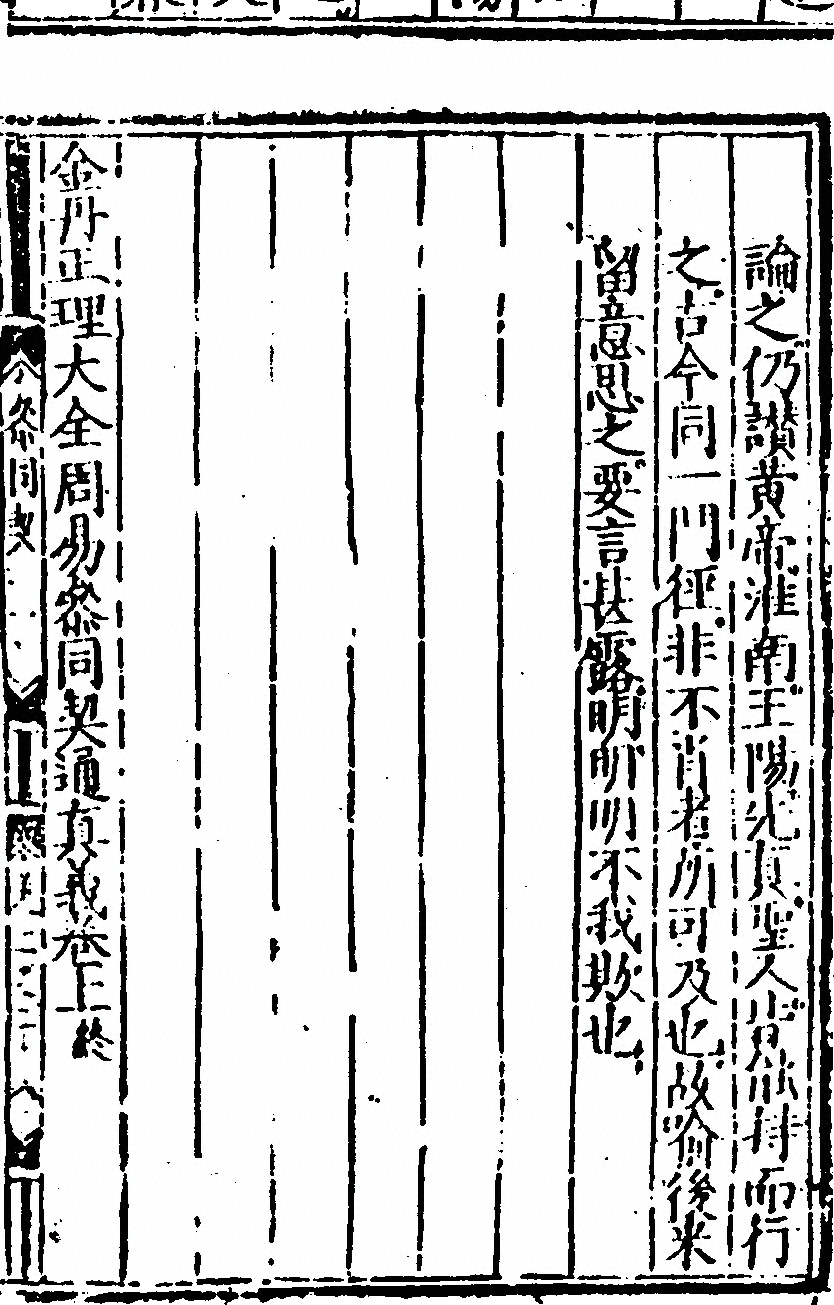 論之仍讃黄帝淮南王陽先真聖人皆煉丹而行
之古今同一門徑非不肖者所可及也故喻後来
留意思之要言甚露明明明不我欺也
金丹正理大全周易叅同契通真義卷上終
叅同契